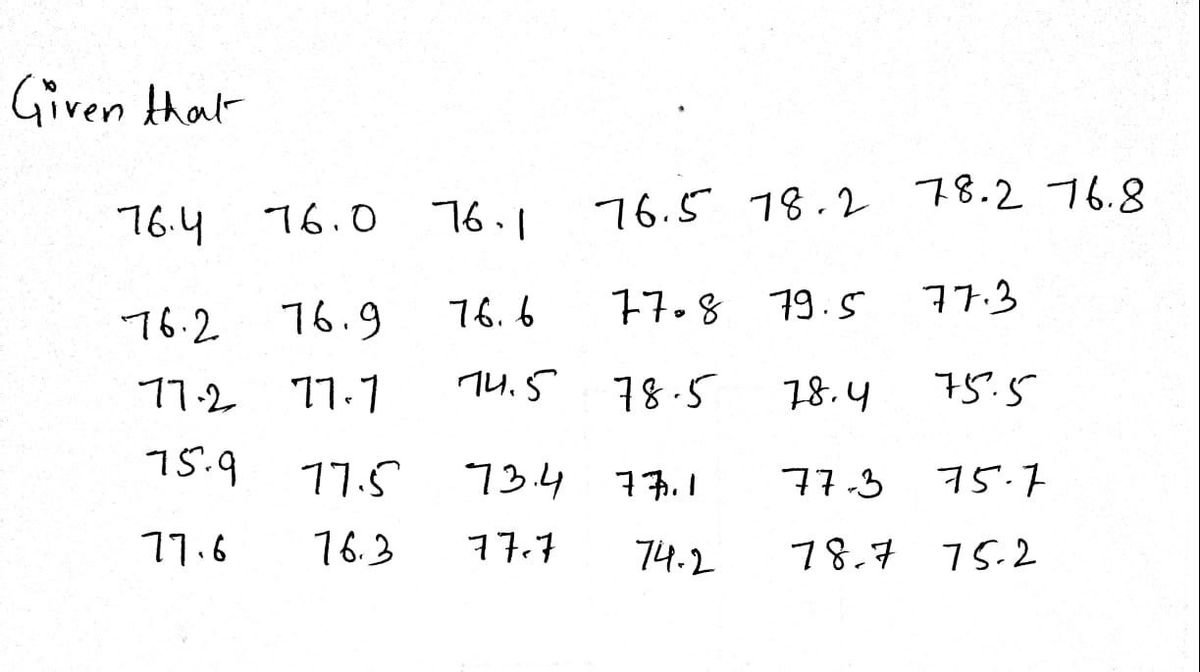 Given that
76.4 76.0 76.1 76.5 78.2 78.2 76.8
76.2 76.9 76.6 77.8 79.5 77.3
77.2 77.7 74.5 78.5 78.4 75.5
75.9 77.5 73.4 77.1 77.3 75.7
77.6 76.3 77.7 74.2 78.7 75.2